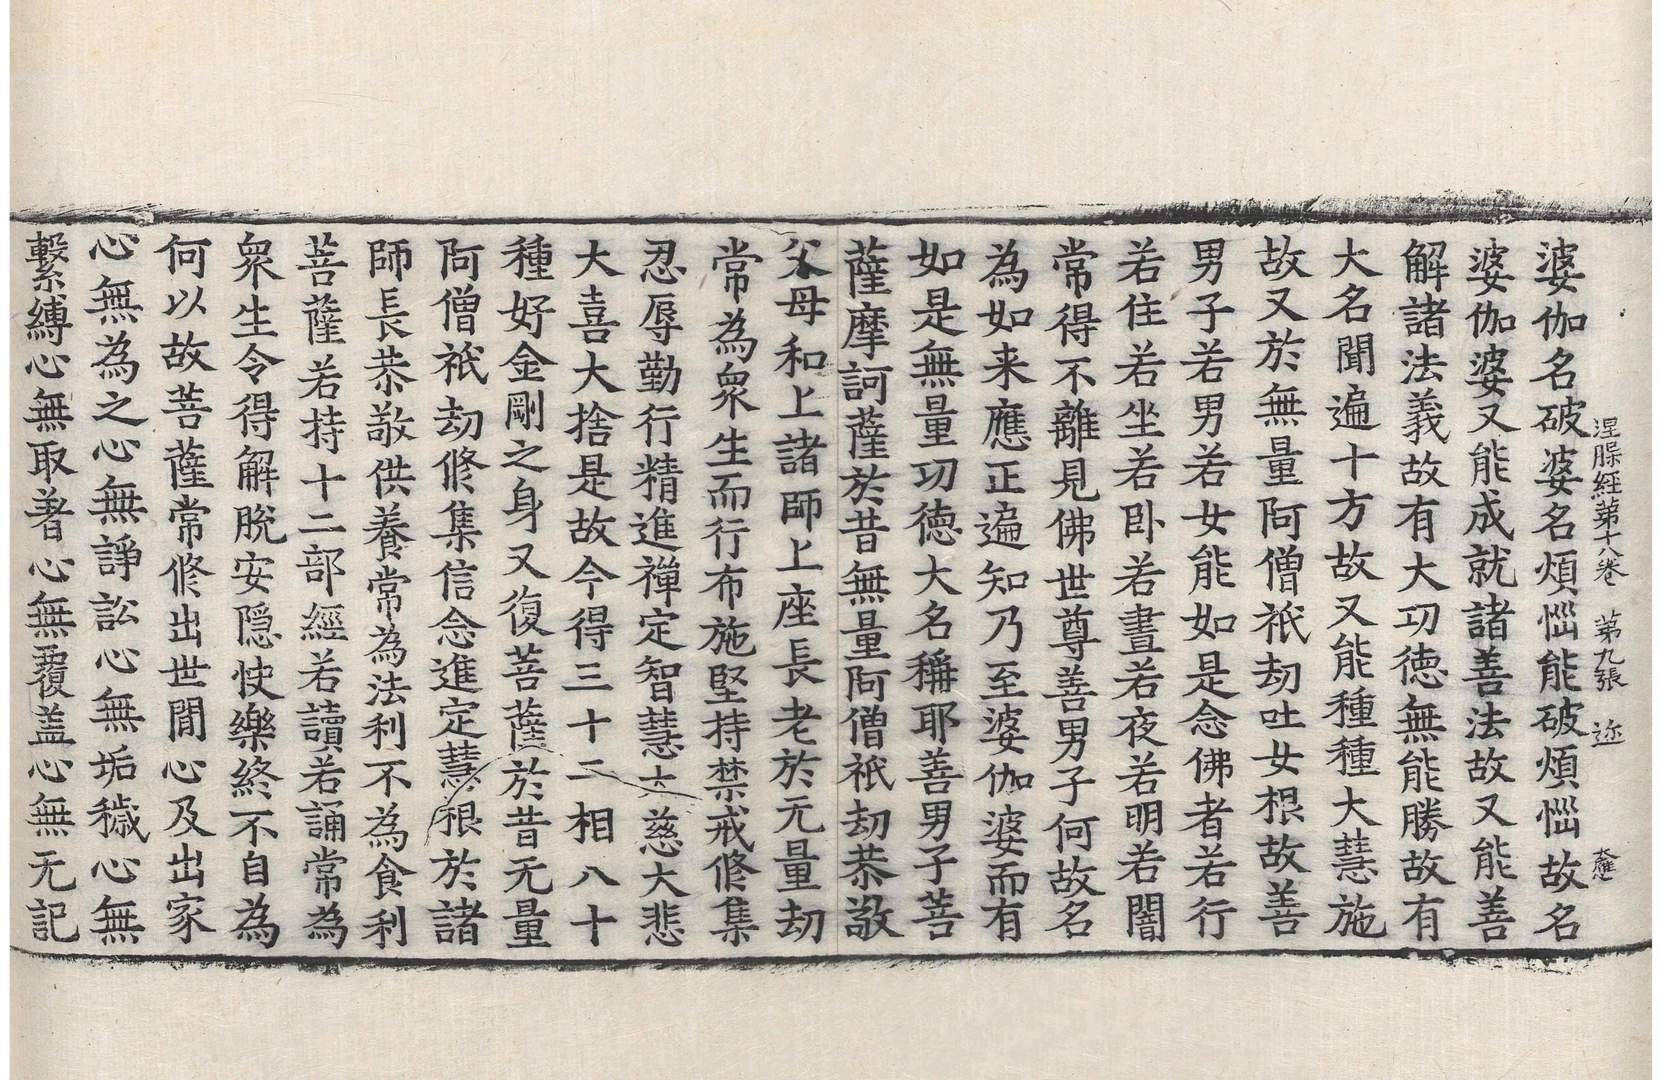 涅槃經第十八卷 第九張 迩 應
婆伽名破婆名煩惱能破煩惱故名
婆伽婆又能成就諸善法故又能善
解諸法義故有大功徳無能勝故有
大名聞遍十方故又能種種大慧施
故又於無量阿僧祇劫吐女根故善
男子若男若女能如是念佛者若行
若住若坐若卧若晝若夜若明若闇
常得不離見佛世尊善男子何故名
為如来應正遍知乃至婆伽婆而有
如是無量功徳大名稱耶善男子菩
薩摩訶薩於昔無量阿僧祇劫恭敬
父母和上諸師上座長老於无量劫
常為衆生而行布施堅持禁戒修集
忍辱勤行精進禪定智慧大慈大悲
大喜大捨是故今得三十二相八十
種好金剛之身又復菩薩於昔无量
阿僧祇劫修集信念進定慧根於諸
師長恭敬供養常為法利不為食利
菩薩若持十二部經若讀若誦常為
衆生令得解脫安隠快樂終不自為
何以故菩薩常修出世閒心及出家
心無為之心無諍訟心無垢穢心無
繫縛心無取著心無覆盖心無无記